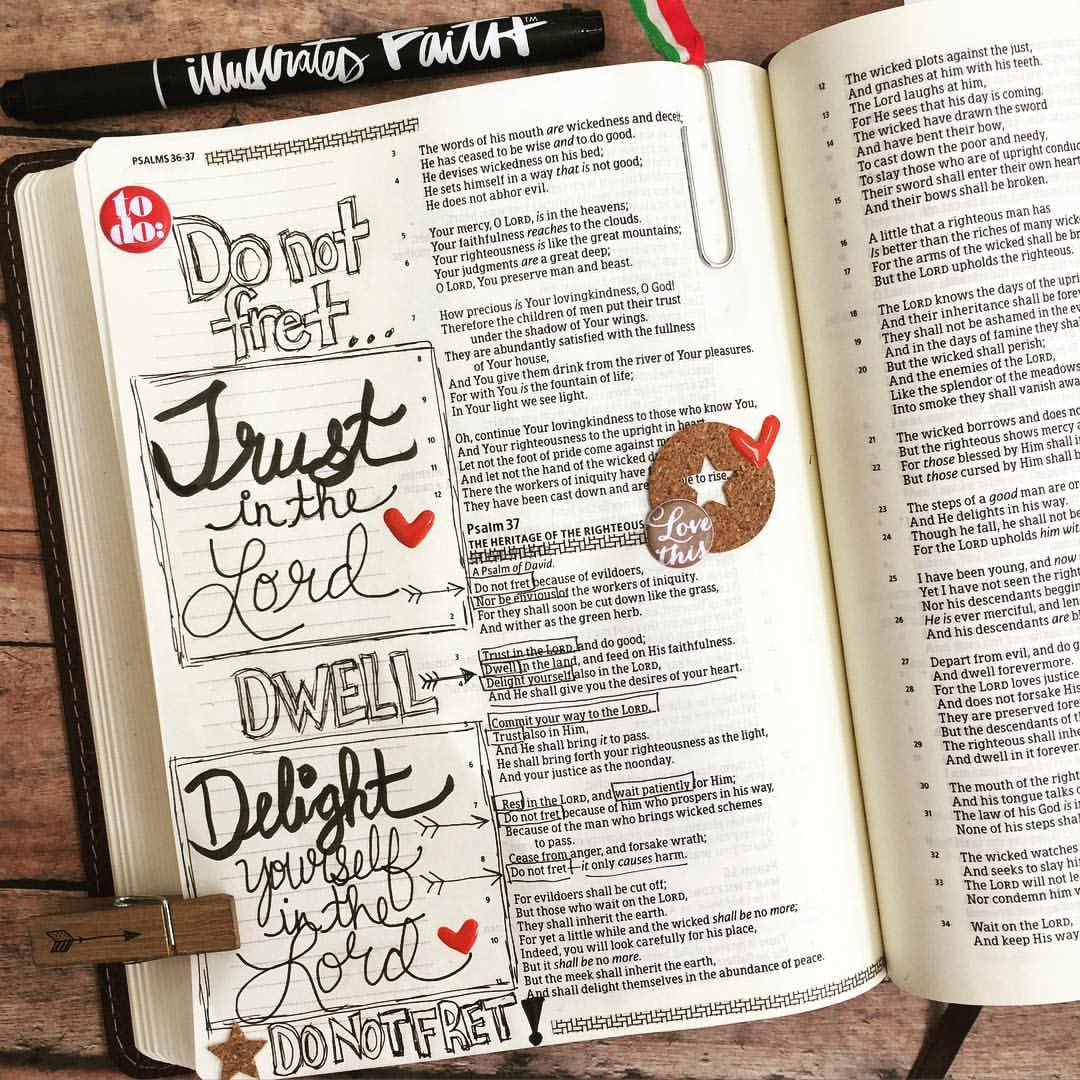 illustrated Faith™
PSALMS 36-37
to
do:
Do not
fret...
Trust
in the
Lord
DWELL
Delight
yourself
in the
Lord
DO NOT FRET!
3 The words of his mouth are wickedness and deceit;
He has ceased to be wise and to do good.
4 He devises wickedness on his bed;
He sets himself in a way that is not good;
He does not abhor evil.
5 Your mercy, O LORD, is in the heavens;
Your faithfulness reaches to the clouds.
6 Your righteousness is like the great mountains;
Your judgments are a great deep;
O LORD, You preserve man and beast.
7 How precious is Your lovingkindness, O God!
Therefore the children of men put their trust
under the shadow of Your wings.
8 They are abundantly satisfied with the fullness
of Your house,
And You give them drink from the river of Your pleasures.
9 For with You is the fountain of life;
In Your light we see light.
10 Oh, continue Your lovingkindness to those who know You,
And Your righteousness to the upright in heart.
11 Let not the foot of pride come against
And let not the hand of the wicked
12 There the workers of iniquity have
They have been cast down and are to rise.
Love
this
Psalm 37
THE HERITAGE OF THE RIGHTEOUS
A Psalm of David.
Do not fret because of evildoers,
Nor be envious of the workers of iniquity.
2 For they shall soon be cut down like the grass,
And wither as the green herb.
3 Trust in the LORD, and do good;
Dwell in the land, and feed on His faithfulness.
4 Delight yourself also in the LORD,
And He shall give you the desires of your heart.
5 Commit your way to the LORD,
Trust also in Him,
And He shall bring it to pass.
6 He shall bring forth your righteousness as the light,
And your justice as the noonday.
7 Rest in the LORD, and wait patiently for Him;
Do not fret because of him who prospers in his way,
Because of the man who brings wicked schemes
to pass.
8 Cease from anger, and forsake wrath;
Do not fret—it only causes harm.
9 For evildoers shall be cut off;
But those who wait on the LORD,
They shall inherit the earth.
10 For yet a little while and the wicked shall be no more;
Indeed, you will look carefully for his place,
But it shall be no more.
11 But the meek shall inherit the earth,
And shall delight themselves in the abundance of peace.
12 The wicked plots against the just,
And gnashes at him with his teeth.
13 The Lord laughs at him,
For He sees that his day is coming.
14 The wicked have drawn the sword
And have bent their bow,
To cast down the poor and needy,
To slay those who are of upright
15 Their sword shall enter their own heart
And their bows shall be broken.
16 A little that a righteous man has
Is better than the riches of many
17 For the arms of the wicked shall be
But the LORD upholds the righteous.
18 The LORD knows the days of the
And their inheritance shall be
19 They shall not be ashamed in the
And in the days of famine they
20 But the wicked shall perish;
And the enemies of the LORD,
Like the splendor of the meadows
Into smoke they shall vanish
21 The wicked borrows and does
But the righteous shows mercy
22 For those blessed by Him shall
But those cursed by Him shall
23 The steps of a good man are
And He delights in his way.
24 Though he fall, he shall not be
For the LORD upholds him
25 I have been young, and now
Yet I have not seen the
Nor his descendants
26 He is ever merciful, and
And his descendants are
27 Depart from evil, and do
And dwell forevermore.
28 For the LORD loves justice
And does not forsake His
They are preserved
But the descendants of
29 The righteous shall
And dwell in it forever.
30 The mouth of the
And his tongue talks
31 The law of his God is
None of his steps
32 The wicked watches
And seeks to slay
33 The LORD will not
Nor condemn him
34 Wait on the LORD,
And keep His way